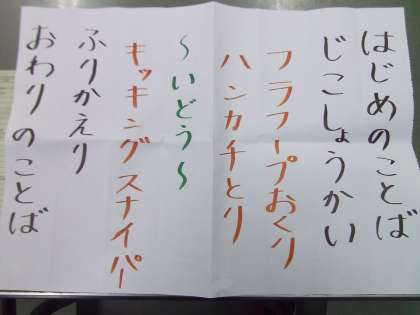 はじめのことば
じこしょうかい
フラフープおくり
ハンカチとり
～いどう～
キッキングスナイパー
ふりかえり
おわりのことば